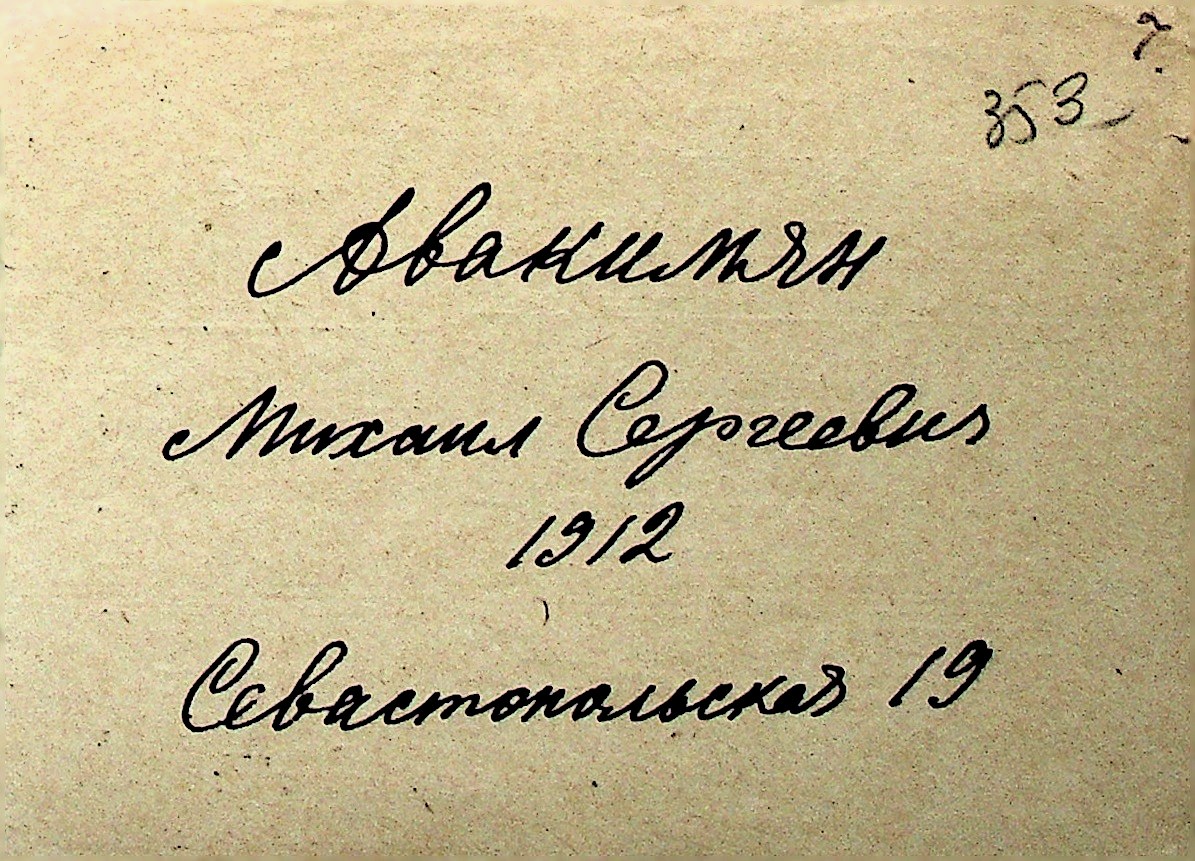 353
Авакимян
Михаил Сергеевич
1912
Севастопольская 19